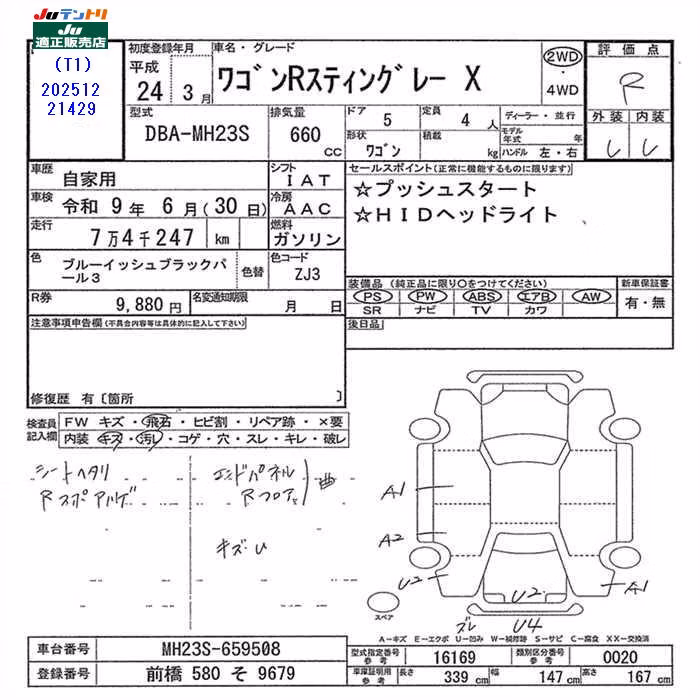 Juテントリ
Ju
適正販売店
(T1)
202512
21429
初度登録年月
平成
24 3月
車名・グレード
ワゴンRスティングレー X
2WD
・
4WD
評価点
R
外装 内装
型式
DBA-MH23S
排気量
660 CC
ドア 5
定員 4 人
形状 ワゴン
積載 kg
ディーラー・並行
モデル年式 年
ハンドル 左・右
車歴 自家用
シフト IAT
車検 令和 9年 6月(30日)
冷房 AAC
走行 7万4千247 km
燃料 ガソリン
セールスポイント(正常に機能するものに限ります)
☆プッシュスタート
☆HIDヘッドライト
色 ブルーイッシュブラックパール3
色替
色コード ZJ3
装備品 (純正品に限り〇をつけてください)
PS PW ABS エアB AW
SR ナビ TV カワ
新車保証書
有・無
R券 9,880円
名変通知期限 月 日
後日品
注意事項申告欄(不具合内容等は具体的に記入して下さい)
修復歴 有〔箇所 〕
検査員記入欄
FW キズ・飛石・ヒビ割・リペア跡・×要
内装・キズ・汚レ・コゲ・穴・スレ・キレ・破レ
シートヘタリ
エンドパネル
Rフロア
曲
A1
A2
U2
U2
A1
ズレ
U4
スペア
A－キズ E－エクボ U－凹み W－補修跡 S－サビ C－腐食 XX－交換済
車台番号 MH23S-659508
型式指定番号 参考 16169
類別区分番号 参考 0020
登録番号 前橋 580 そ 9679
車庫証明用 参考
長さ 339 cm 幅 147 cm 高さ 167 cm